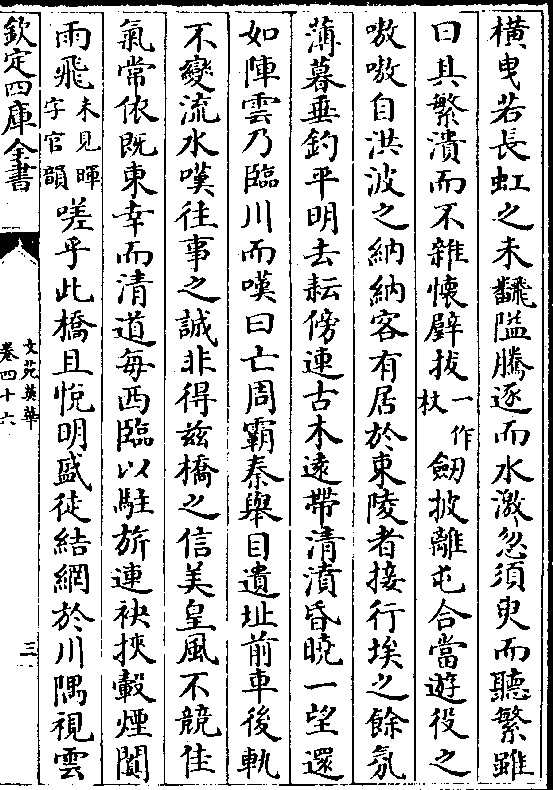 橫曳若長虹之未飜隘騰逐而水激忽須臾而聽繁雖
曰具繁潰而不雜懷壁拔一作杖劒披離屯合當遊役之
嗷嗷自洪波之納納客有居於東陵者接行埃之餘氛
薄暮垂釣平明去耘傍連古木遠帶清濆昏曉一望還
如陣雲乃臨川而嘆曰亡周霸秦舉目遺址前車後軌
不變流水嘆往事之誠非得兹橋之信美皇風不競佳
氣常依既東幸而清道每西臨以駐旂連袂挾轂煙闐
雨飛未見暉字官韻嗟乎此橋且悅明盛徒結網於川隅視雲
欽定四庫全書
文苑英華
卷四十六
三